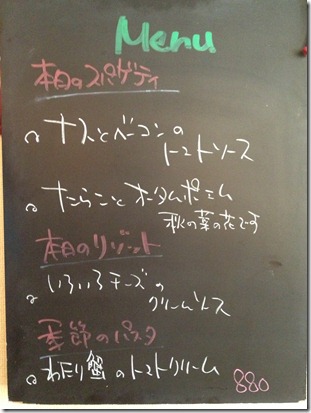 Menu
本日のスパゲティ
ナスとベーコンの
トマトソース
たらことオータムポエム
秋の菜の花です
本日のリゾット
いろいろチーズの
クリームソース
季節のパスタ
わたり蟹のトマトクリーム
880